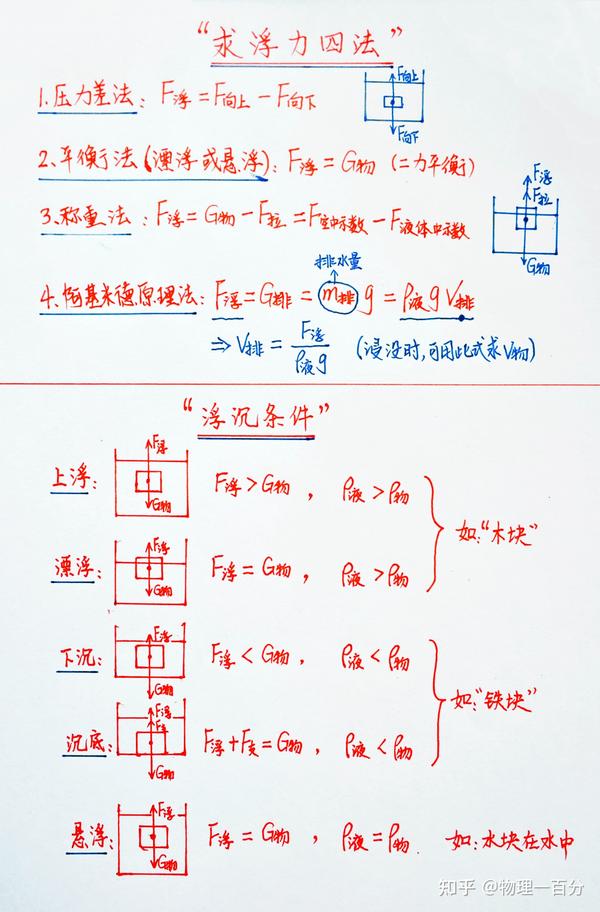 “求浮力四法”
1.压力差法：F浮=F向上-F向下
F向上
F向下
2.平衡法(漂浮或悬浮)：F浮=G物 (二力平衡)
3.称重法：F浮=G物-F拉=F空中示数-F液体中示数
F浮
F拉
G物
排水量
4.阿基米德原理法：F浮=G排=m排g=ρ液gV排
⇒V排=F浮/ρ液g (浸没时,可用此式求V物)
“浮沉条件”
上浮： F浮 G物 F浮>G物 , ρ液>ρ物
漂浮： F浮 G物 F浮=G物 , ρ液>ρ物
如:“木块”
下沉： F浮 G物 F浮<G物 , ρ液<ρ物
沉底： F浮 F支 G物 F浮+F支=G物 , ρ液<ρ物
如:“铁块”
悬浮： F浮 G物 F浮=G物 , ρ液=ρ物. 如:水块在水中
知乎 @物理一百分